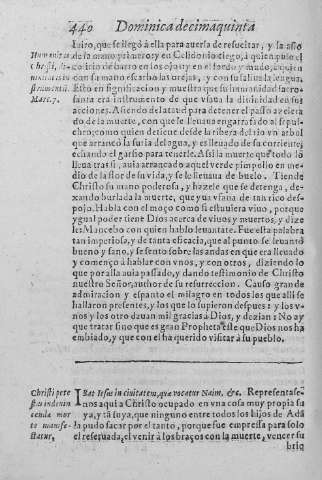 440 Dominica decimaquinta
Iairo, que se llegò à ella para auerla de resucitar, y la asio
de la mano primero: y en Celidonio ciego, à quien puso el
colirio de barro en los ojos: y en el sordo y mudo, à quien
con su mano escarbò las orejas, y con su saliua la lengua.
Esto en significacion y muestra que su humanidad sacro-
santa era instrumento de que vsaua la diuinidad en sus
acciones. Asiendo del ataud para detener el passo aceiera
do de la muerte, con que le lleuaua engarrafado al sepul-
chro; como quien detiene desde la ribera del rio vn arbol
que arrancó la furia del agua, y es lleuado de su corriente,
echando el garfio para traerle. Assi la muerte que todo lo
lleua tras si, auia arrancado aquel verde pimpollo en me-
dio de la flor de su vida, y se le lleuaua de buelo. Tiende
Christo su mano poderosa, y hazele que se detenga, de-
xando burlada la muerte, que yua vfana de tan rico des-
pojo. Habla con el moço como si estuuiera viuo, porque
ygual poder tiene Dios acerca de viuos y muertos, y dize
les Mancebo con quien hablo leuantate. Fue esta palabra
tan imperiosa, y de tanta eficacia, que al punto se leuantó
bueno y sano, y se sento sobre las andas en que era lleuado
y començò à hablar con vnos, y con otros, diziendo lo
que por alla auia passado, y dando testimonio de Christo
nuestro Señor, author de su resurreccion. Causo grande
admiracion y espanto el milagro en todos los que alli se
hallaron presentes, y los que lo supieron despues: y los v-
nos y los otro dauan mil gracias à Dios, y dezian: No ay
que tratar sino que es gran Propheta este que Dios nos ha
embiado, y que con el ha querido visitar à su pueblo.
Humanitas
Christi,
diuinitatis in
strumentũ
Marc. 7.
Christi pote
stas indenin
cenda mor
te manife-
statur,
IBat Iesus in ciuitatem, quæ vocatur Naim, &c. Representase-
nos aqui a Christo ocupado en vna cosa muy propia su
ya, y tã suya, que ninguno entre todos los hijos de Adã
la pudo sacar por el tanto, porque fue empressa para solo
el reseruada, el venir à los braços con la muerte, vencer su
brio